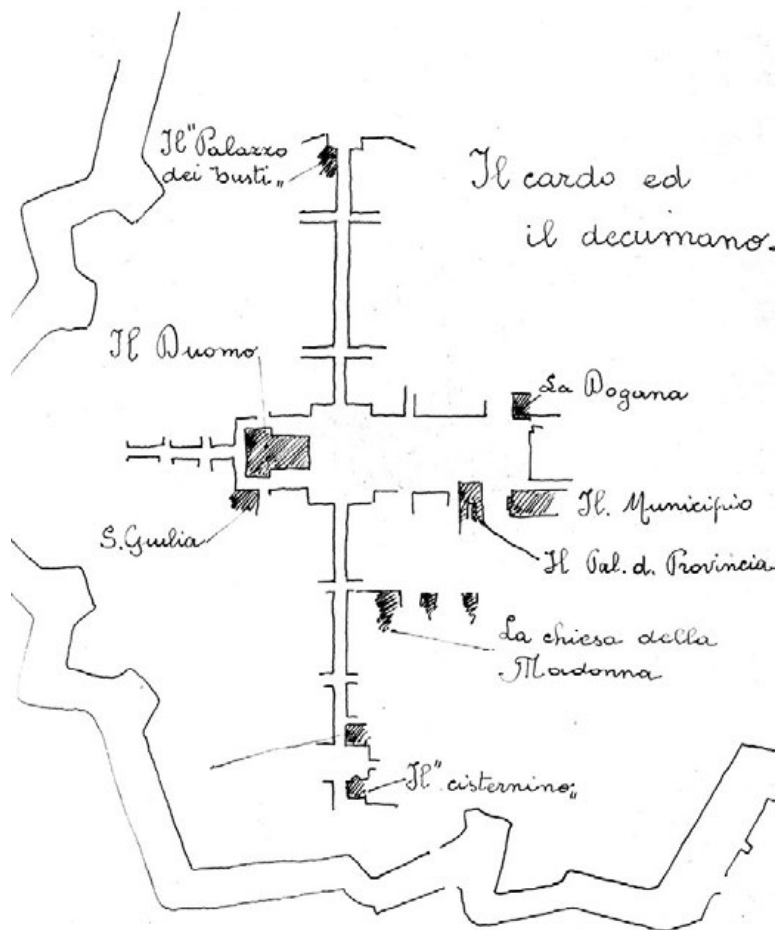 Il "Palazzo
dei busti„
Il cardo ed
il decumano.
Il Duomo
La Dogana
S. Giulia
Il. Municipio
Il Pal. d. Provincia
La chiesa della
Madonna
Il "cisternino„